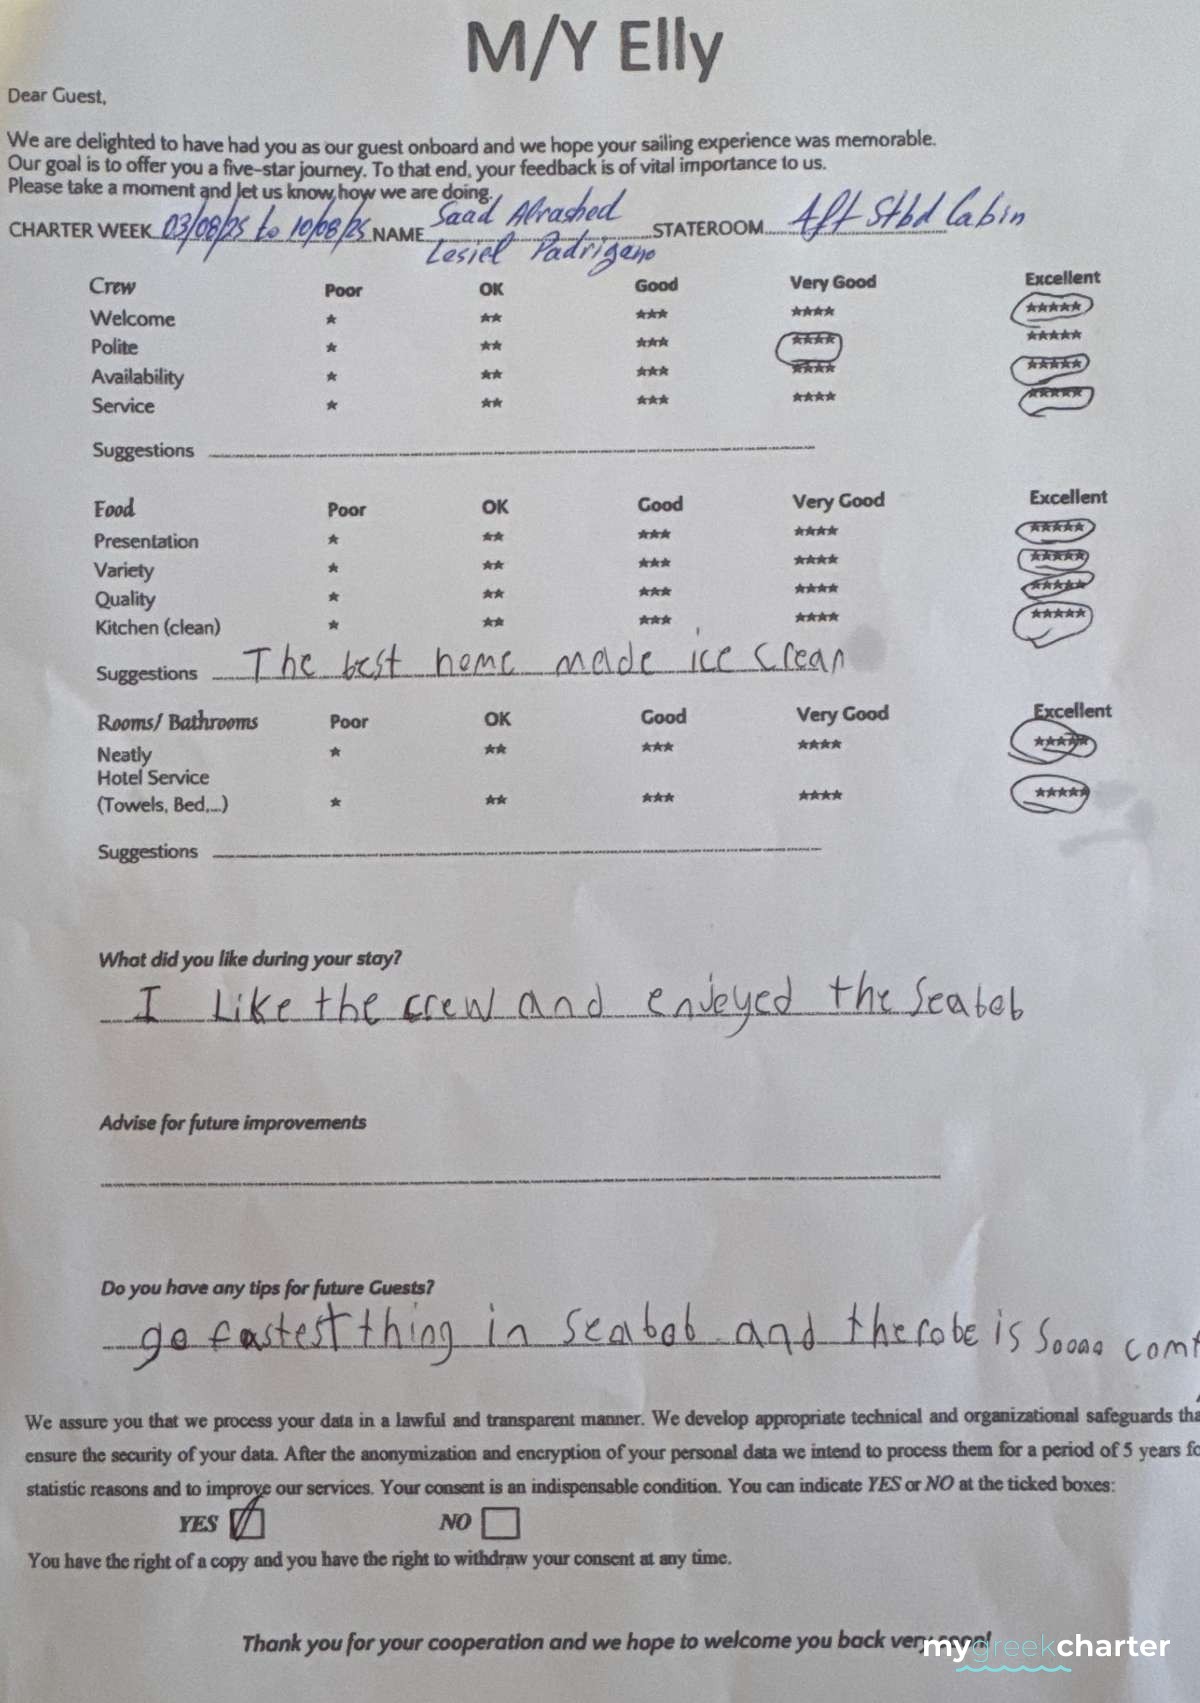 M/Y Elly
Dear Guest,
We are delighted to have had you as our guest onboard and we hope your sailing experience was memorable.
Our goal is to offer you a five-star journey. To that end, your feedback is of vital importance to us.
Please take a moment and let us know how we are doing.
CHARTER WEEK 03/08/25 to 10/08/25 NAME Saad Alrashed STATEROOM Aft Stbd Cabin
Lesiel Padrigano
Crew Poor OK Good Very Good Excellent
Welcome ★ ★★ ★★★ ★★★★ ★★★★★
Polite ★ ★★ ★★★ ★★★★ ★★★★★
Availability ★ ★★ ★★★ ★★★★ ★★★★★
Service ★ ★★ ★★★ ★★★★ ★★★★★
Suggestions
Food Poor OK Good Very Good Excellent
Presentation ★ ★★ ★★★ ★★★★ ★★★★★
Variety ★ ★★ ★★★ ★★★★ ★★★★★
Quality ★ ★★ ★★★ ★★★★ ★★★★★
Kitchen (clean) ★ ★★ ★★★ ★★★★ ★★★★★
Suggestions The best home made ice crean
Rooms/ Bathrooms Poor OK Good Very Good Excellent
Neatly ★ ★★ ★★★ ★★★★ ★★★★★
Hotel Service
(Towels, Bed,...) ★ ★★ ★★★ ★★★★ ★★★★★
Suggestions
What did you like during your stay?
I Like the crew and enjeyed the seabob
Advise for future improvements
Do you have any tips for future Guests?
go fastest thing in seabob and the robe is soooo comf
We assure you that we process your data in a lawful and transparent manner. We develop appropriate technical and organizational safeguards tha
ensure the security of your data. After the anonymization and encryption of your personal data we intend to process them for a period of 5 years fo
statistic reasons and to improve our services. Your consent is an indispensable condition. You can indicate YES or NO at the ticked boxes:
YES NO
You have the right of a copy and you have the right to withdraw your consent at any time.
Thank you for your cooperation and we hope to welcome you back very soon!
mygreekcharter